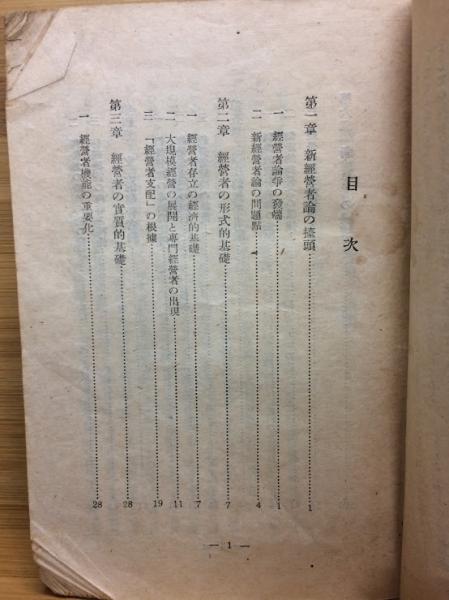 目次
第一章 新經營者論の擡頭……1
一 經營者論爭の發端……1
二 新經營者論の問題點……4
第二章 經營者の形式的基礎……7
一 經營者存立の經濟的基礎……7
二 大規模經營の展開と專門經營者の出現……11
三 「經營者支配」の根據……19
第三章 經營者の實質的基礎……28
一 經營者機能の重要化……28
— 1 —